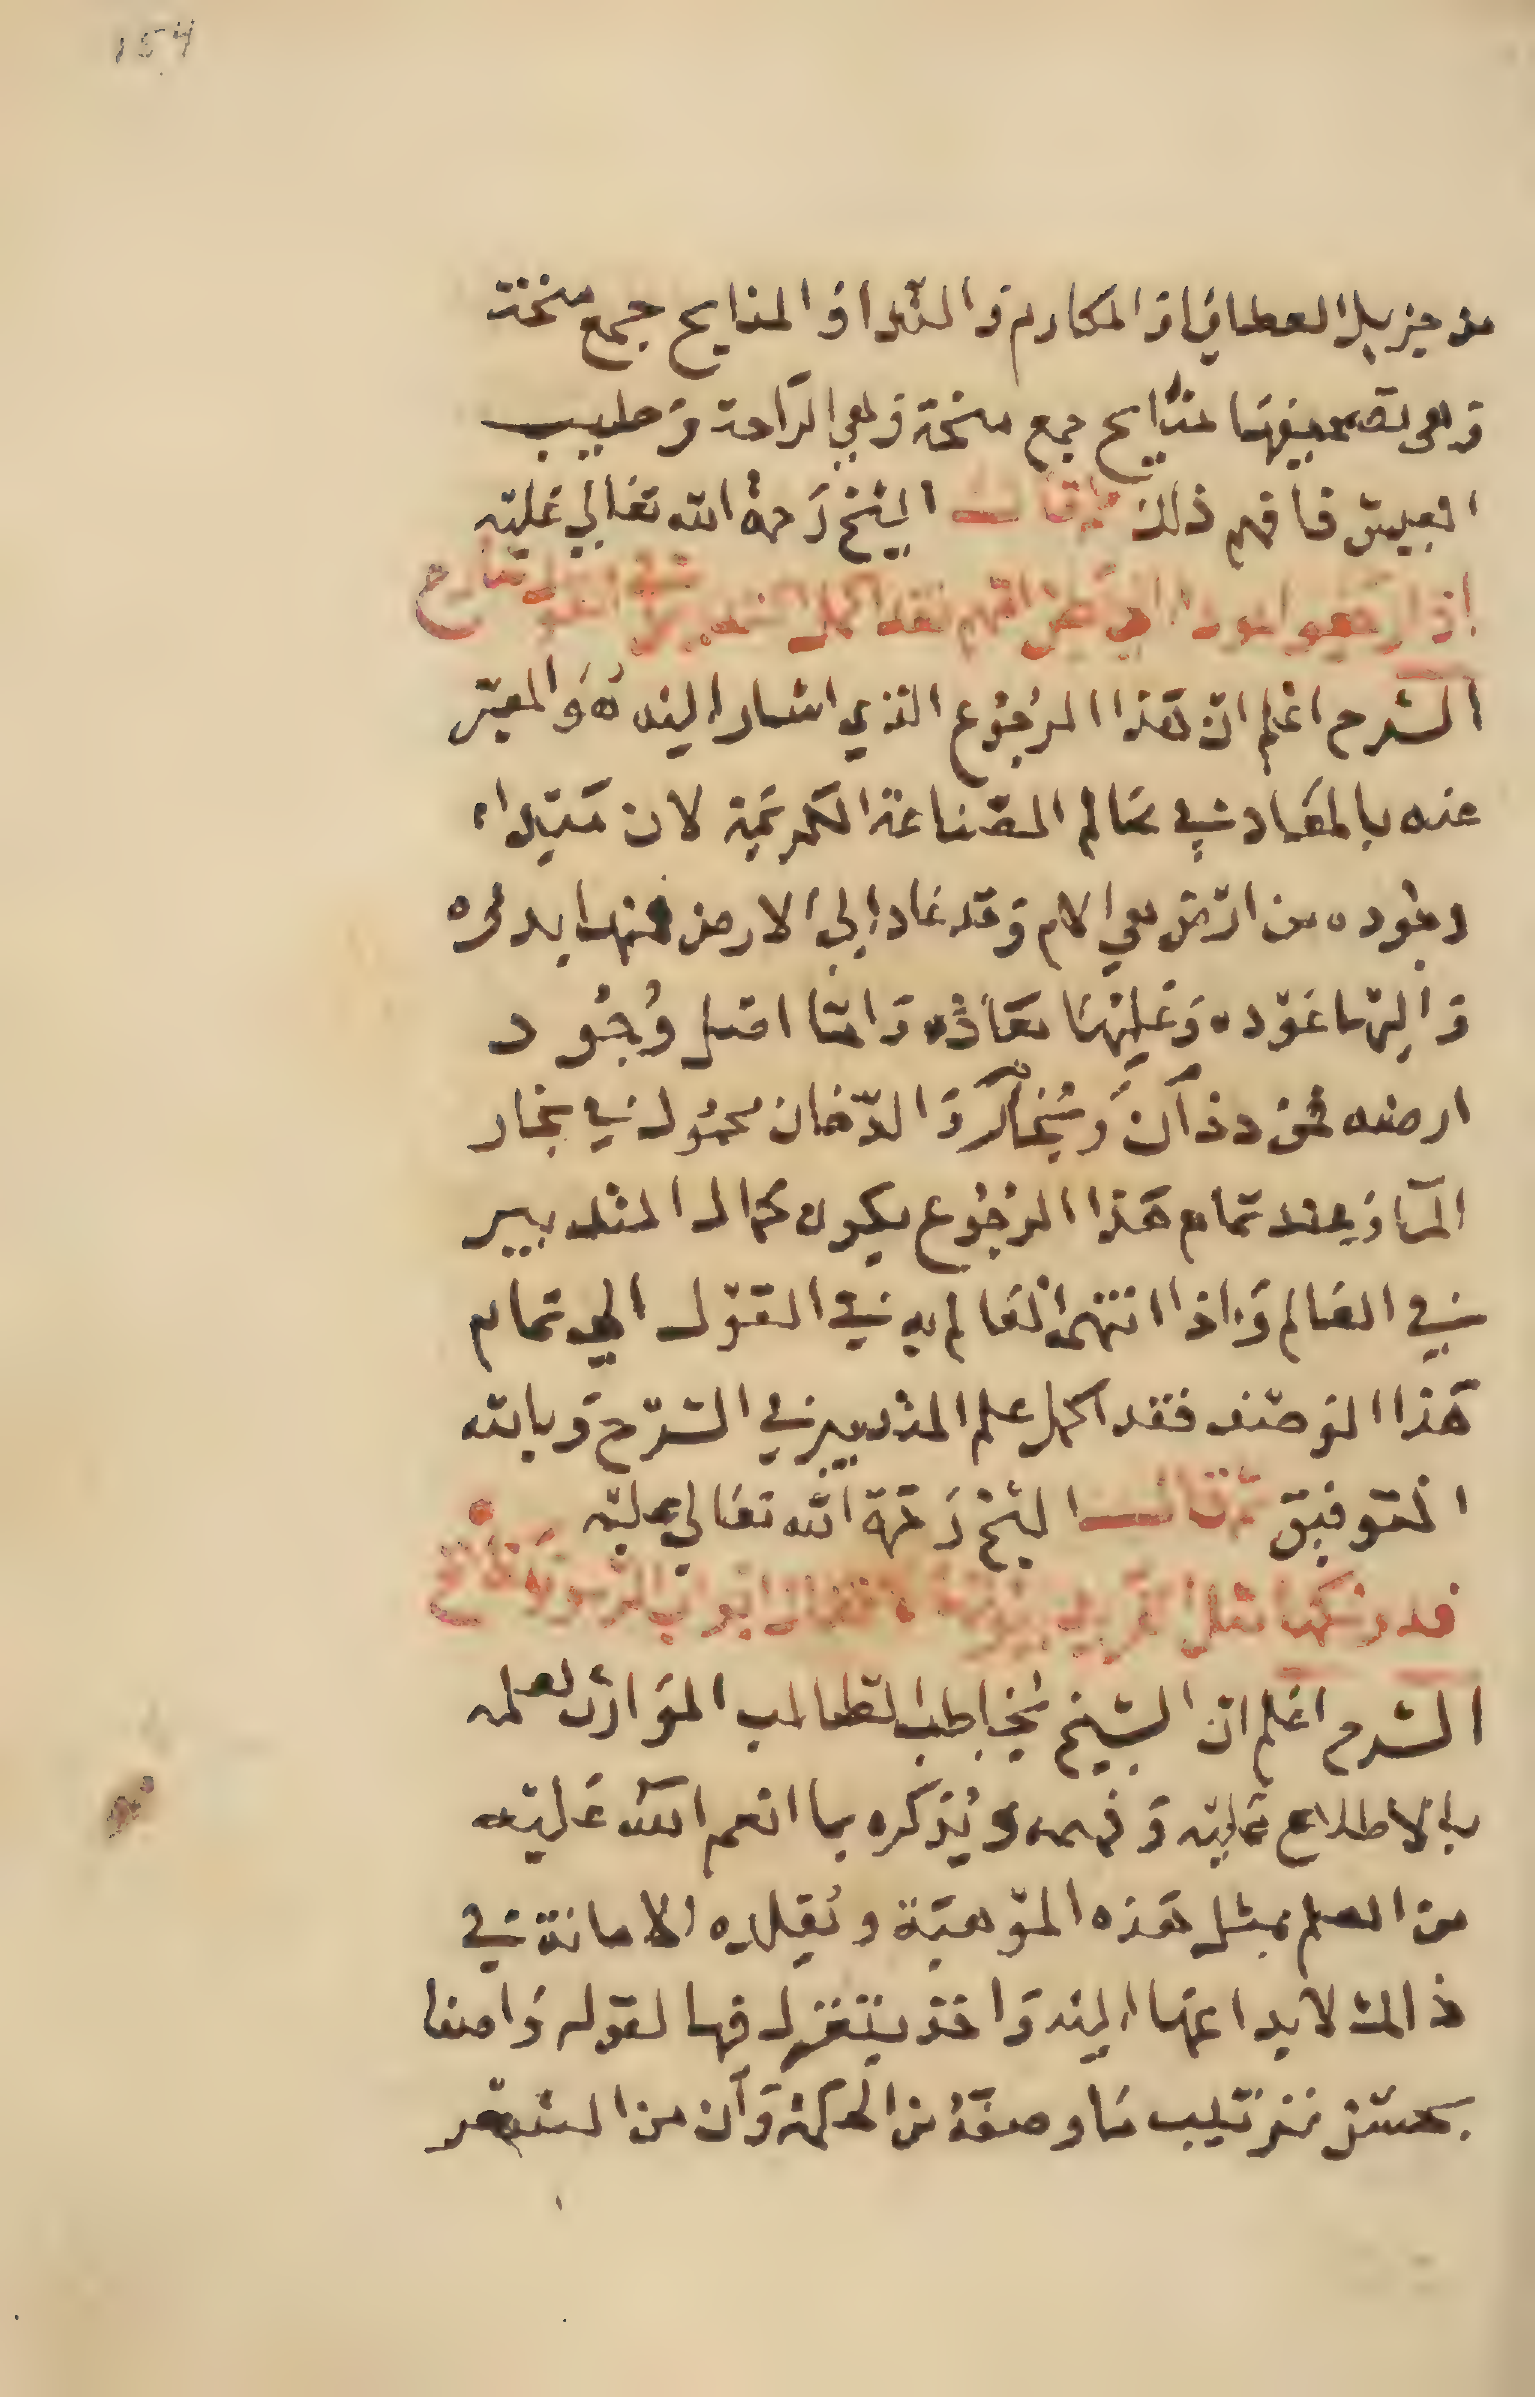 154
من جزيل العطايا والمكارم والندا والمنايح جمع منحة
وهى تصحيفها منايح جمع منحة وهي الراحة وطيب
العيش فافهم ذلك ثم قال الشيخ رحمة الله تعالى عليه
إذا رجعوا لهذا الفهم فقد اكمل
الشرح اعلم ان هذا الرجوع الذي اشار اليه هو المعبر
عنه بالمعاد في عالم الصناعة الكريمة لان مبداء
وجوده من ارض هي الام وقد عاد إلى الارض فمنها بدؤه
واليها عوده وعليها معاده وامّا اصل وجود
ارضه فمن دخان وبخار والدّخان محمول في بخار
الماء وعند تمام هذا الرجوع يكون كمال التدبير
في العالم واذا انتهى العالم به في القول الى تمام
هذا الوصف فقد اكمل علم التدبير في الشرح وبالله
التوفيق ثم قال الشيخ رحمة الله تعالى عليه
فدونكها مثل
الشرح اعلم ان الشيخ يخاطب الطالب الموازن لعلمه
بالاطلاع عليه وفهمه ويذكره بما انعم الله عليه
من العلم بمثل هذه الموهبة ويقلده الامانة في
ذالك لابداعها اليه واخذ يتغزل فيها لقوله وامنها
بحسن ترتيب ما وصفه من الحكمة وان من الشعر